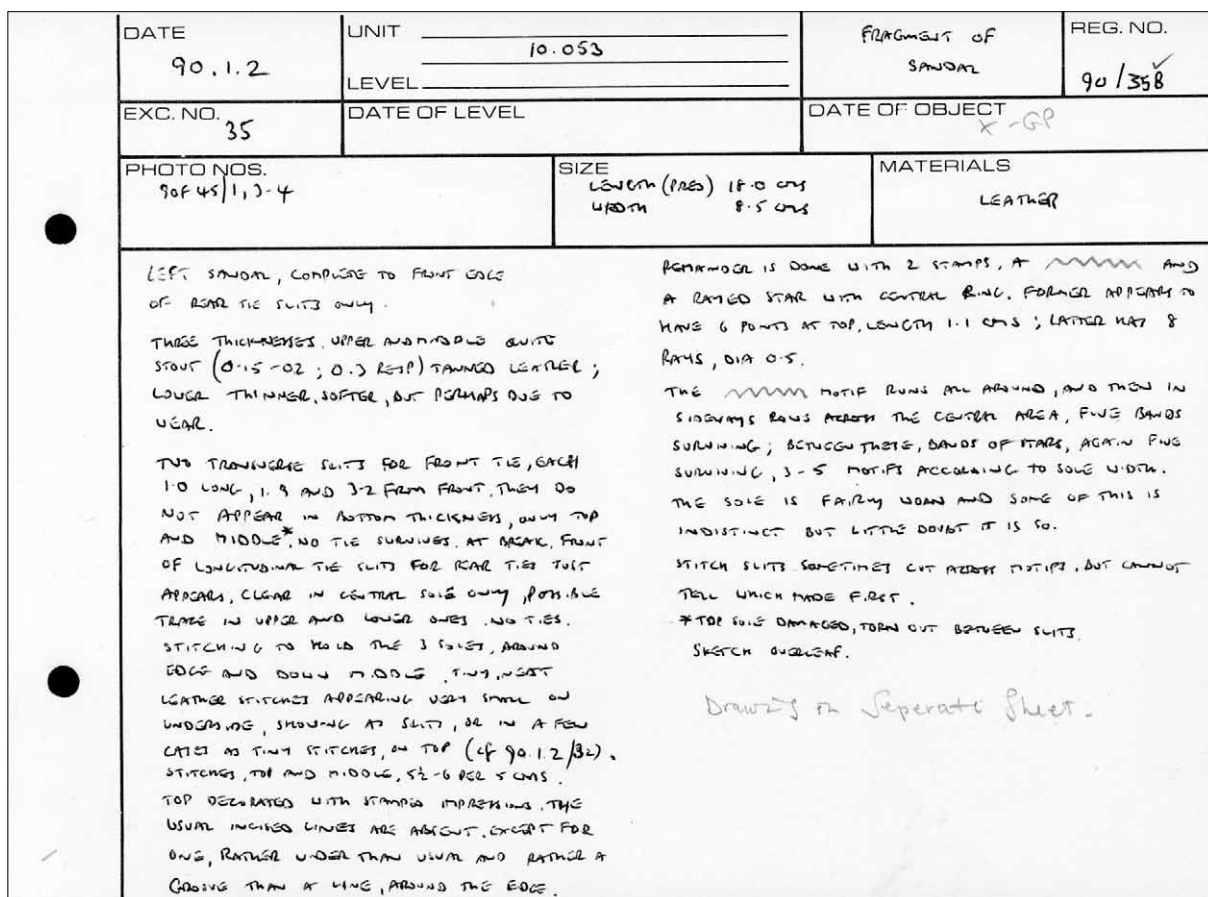 DATE
90.1.2
UNIT
10.053
LEVEL
FRAGMENT OF
SANDAL
REG. NO.
90/358
EXC. NO.
35
DATE OF LEVEL
DATE OF OBJECT
X-GP
PHOTO NOS.
90F45/1,3-4
SIZE
LENGTH (PRES) 18.0 CMS
WIDTH 8.5 CMS
MATERIALS
LEATHER
LEFT SANDAL, COMPLETE TO FRONT EDGE
OF REAR TIE SLITS ONLY.
THREE THICKNESSES. UPPER AND MIDDLE QUITE
STOUT (0.15-02; 0.3 RESP) TANNED LEATHER;
LOWER THINNER, SOFTER, BUT PERHAPS DUE TO
WEAR.
TWO TRANSVERSE SLITS FOR FRONT TIE, EACH
1.0 LONG, 1.9 AND 3.2 FROM FRONT. THEY DO
NOT APPEAR IN BOTTOM THICKNESS, ONLY TOP
AND MIDDLE*. NO TIE SURVIVES. AT BREAK, FRONT
OF LONGITUDINAL TIE SLITS FOR REAR TIES JUST
APPEARS, CLEAR IN CENTRAL SOLE ONLY, POSSIBLE
TRACE IN UPPER AND LOWER ONES. NO TIES.
STITCHING TO HOLD THE 3 SOLES, AROUND
EDGE AND DOWN MIDDLE, TINY, NEAT
LEATHER STITCHES APPEARING VERY SMALL ON
UNDERSIDE, SHOWING AS SLITS, OR IN A FEW
CASES AS TINY STITCHES, ON TOP (cf 90.1.2/32).
STITCHES, TOP AND MIDDLE, 5½-6 PER 5 CMS.
TOP DECORATED WITH STAMPED IMPRESSIONS. THE
USUAL INCISED LINES ARE ABSENT, EXCEPT FOR
ONE, RATHER WIDER THAN USUAL AND RATHER A
GROOVE THAN A LINE, AROUND THE EDGE.
REMAINDER IS DONE WITH 2 STAMPS, A AND
A RAYED STAR WITH CENTRAL RING. FORMER APPEARS TO
HAVE 6 POINTS AT TOP, LENGTH 1.1 CMS; LATTER HAS 8
RAYS, DIA 0.5.
THE MOTIF RUNS ALL AROUND, AND THEN IN
SIDEWAYS ROWS ACROSS THE CENTRAL AREA, FIVE BANDS
SURVIVING; BETWEEN THESE, BANDS OF STARS, AGAIN FIVE
SURVIVING, 3-5 MOTIFS ACCORDING TO SOLE WIDTH.
THE SOLE IS FAIRLY WORN AND SOME OF THIS IS
INDISTINCT BUT LITTLE DOUBT IT IS SO.
STITCH SLITS SOMETIMES CUT ACROSS MOTIFS, BUT CANNOT
TELL WHICH MADE FIRST.
*TOP SOLE DAMAGED, TORN OUT BETWEEN SLITS.
SKETCH OVERLEAF.
Drawing on Seperate Sheet.